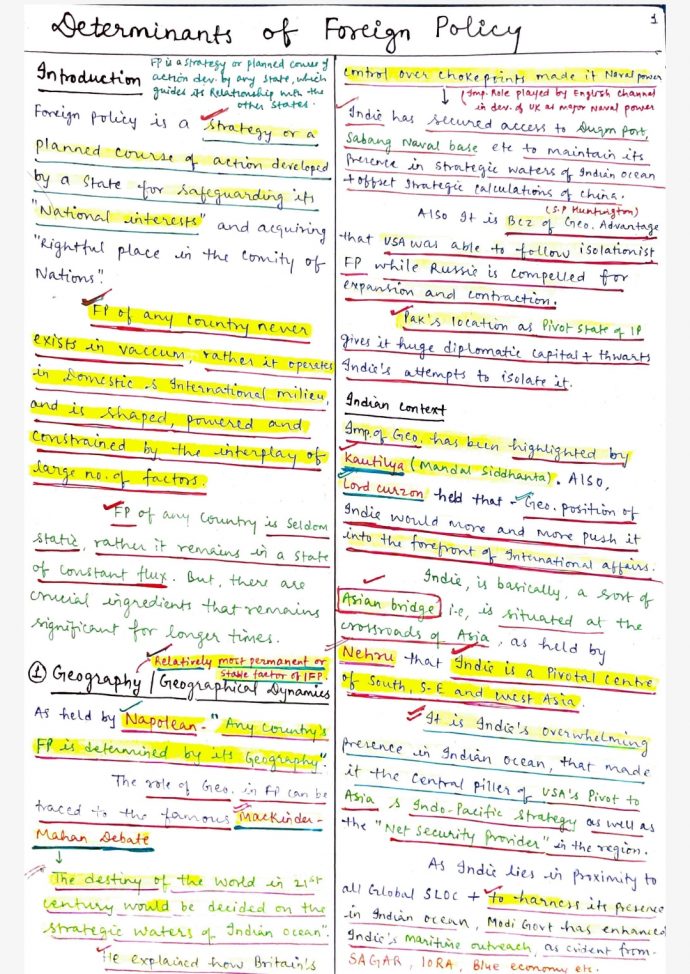 Determinants of Foreign Policy
1
Introduction
FP is a strategy or planned course of
action dev. by any state, which
guides its Relationship with the
other States.
Foreign Policy is a strategy or a
planned course of action developed
by a State for safeguarding its
"National interests" and acquiring
"Rightful place in the comity of
Nations".
FP of any country never
exists in vaccum, rather it operates
in Domestic & International milieu,
and is shaped, powered and
constrained by the interplay of
large no. of factors.
FP of any country is seldom
static, rather it remains in a state
of constant flux. But, there are
crucial ingredients that remains
significant for longer times.
Relatively most permanent or
stable factor of IFP.
① Geography / Geographical Dynamics
As held by Napolean - "Any Country's
FP is determined by its Geography".
The role of Geo. in FP can be
traced to the famous Mackinder-
Mahan Debate
↓
The destiny of the World in 21st
century would be decided on the
strategic waters of Indian ocean".
He explained how Britain's
control over chokepoints made it Naval power
↓ (Imp. Role played by English Channel
in dev. of UK as major Naval power
India has secured access to Duqm Port,
Sabang Naval base etc to maintain its
Presence in strategic waters of Indian ocean
+ offset strategic calculations of china.
(S.P Huntington)
Also It is Bcz of Geo. Advantage
that USA was able to follow isolationist
FP while Russia is compelled for
expansion and contraction.
Pak's location as Pivot state of IP
gives it huge diplomatic capital + thwarts
India's attempts to isolate it.
Indian context
Imp. of Geo. has been highlighted by
Kautilya (Mandal Siddhanta). Also,
Lord curzon held that - Geo. position of
India would more and more push it
into the forefront of International affairs.
India, is basically, a sort of
Asian bridge i.e, is situated at the
crossroads of Asia, as held by
Nehru that India is a Pivotal Centre
of South, S-E and West Asia.
It is India's overwhelming
presence in Indian ocean, that made
it the Central piller of USA's Pivot to
Asia & Indo-Pacific strategy as well as
the "Net Security Provider" in the region.
As India lies in Proximity to
all Global SLOC + to harness its presence
in Indian ocean, Modi Govt has enhanced
India's maritime outreach, as evident from-
SAGAR, IORA, Blue economy etc.